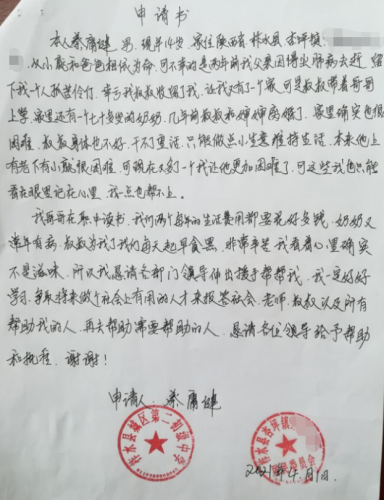 申请书
本人蔡庸健 男 现年14岁 家住陕西省柞水县杏坪镇
从小就和爸爸相依为命,可不幸的是两年前我父亲因得尘肺病去逝,留
下我一个人孤苦伶仃,幸亏我叔叔收留了我,让我又有了一个家,可是叔叔带着哥哥
上学,家里还有一七十多岁的奶奶,几年前叔叔和婶婶离婚了,家里确实也很
困难,叔叔身体也不好,干不了重活,只能做点小生意维持生活,本来他上
有老下有小就很困难,可现在又多了一个我让他更加困难了,可这些我也只能
看在眼里记在心里,我一点也帮不上。
我哥哥在职中读书,我们两个每年的生活费用都要花好多钱,奶奶又
常年有病,叔叔为了我们每天起早贪黑,非常辛苦,我看着心里确实
不是滋味,所以我恳请各部门领导伸出援手帮帮我,我一定好好
学习,争取将来做个社会上有用的人才来报答社会、老师、叔叔以及所有
帮助我的人,再去帮助需要帮助的人,恳请各位领导给予帮助
和批准,谢谢!
申请人:蔡庸健
柞水县城区第二初级中学
柞水县杏坪镇 委员会
2021年4月1日